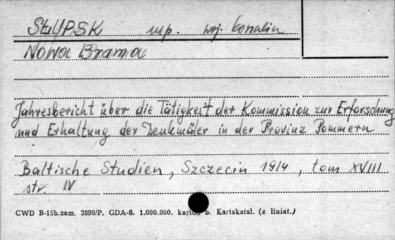 SŁUPSK msp. woj. koszalin
Nowa Brama
Jahresbericht über die Tätigkeit der Kommission zur Erforschung
und Erhaltung der Denkmäler in der Provinz Pommern
Baltische Studien, Szczecin 1914, tom XVIII
str. IV
CWD B-15b.zam. 2899/P. GDA-S. 1.000.000. karton b. Kartakatal. (z liniat.)